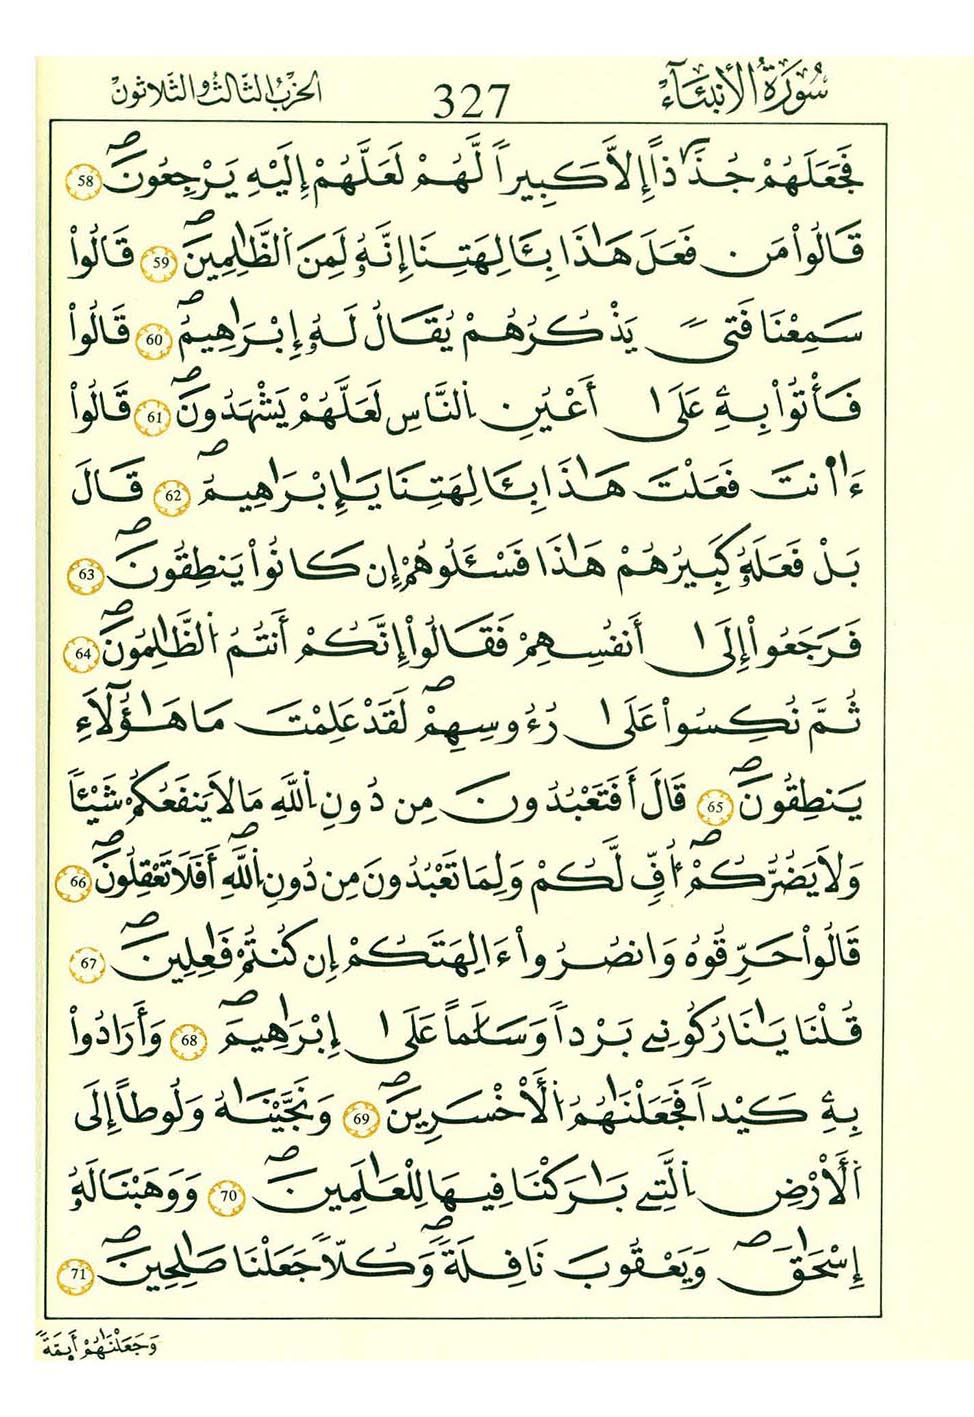 سُورَةُ الأَنبِئَآءِ 327 الحِزْبُ الثَّالِثُ وَالثَّلاَثُونَ
فَجَعَلَهُمْ جُذَٰذاً إِلاَّ كَبِيراً لَّهُمْ لَعَلَّهُمْ إِلَيْهِ يَرْجِعُونَۖ 58
قَالُواْ مَن فَعَلَ هَٰذَا بِـَٔالِهَتِنَا إِنَّهُۥ لَمِنَ اَ۬لظَّٰلِمِينَۖ 59 قَالُواْ
سَمِعْنَا فَتىٗ يَذْكُرُهُمْ يُقَالُ لَهُۥ إِبْرَٰهِيمُۖ 60 قَالُواْ
فَأْتُواْ بِهِۦ عَلَىٰ أَعْيُنِ اِ۬لنَّاسِ لَعَلَّهُمْ يَشْهَدُونَۖ 61 قَالُواْ
ءَآنتَ فَعَلْتَ هَٰذَا بِـَٔالِهَتِنَا يَٰإِبْرَٰهِيمُۖ 62 قَالَ
بَلْ فَعَلَهُۥ كَبِيرُهُمْ هَٰذَا فَسْـَٔلُوهُمْۥ إِن كَانُواْ يَنطِقُونَۖ 63
فَرَجَعُواْ إِلَىٰ أَنفُسِهِمْ فَقَالُواْ إِنَّكُمْ أَنتُمُ اُ۬لظَّٰلِمُونَۖ 64
ثُمَّ نُكِسُواْ عَلَىٰ رُءُوسِهِمْۖ لَقَدْ عَلِمْتَ مَا هَٰؤُلَآءِ
يَنطِقُونَۖ 65 قَالَ أَفَتَعْبُدُونَ مِن دُونِ اِ۬للَّهِ مَا لاَ يَنفَعُكُمْ شَيْـٔاً
وَلاَ يَضُرُّكُمْۥۖ أُفّٖ لَّكُمْ وَلِمَا تَعْبُدُونَ مِن دُونِ اِ۬للَّهِۖ أَفَلَا تَعْقِلُونَۖ 66
قَالُواْ حَرِّقُوهُ وَانصُرُواْ ءَالِهَتَكُمْۥ إِن كُنتُمْ فَٰعِلِينَۖ 67
قُلْنَا يَٰنَارُ كُونِے بَرْداً وَسَلَٰماً عَلَىٰ إِبْرَٰهِيمَۖ 68 وَأَرَادُواْ
بِهِۦ كَيْداً فَجَعَلْنَٰهُمُ اُ۬لَأَخْسَرِينَۖ 69 وَنَجَّيْنَٰهُ وَلُوطاً إِلَى
اَ۬لَأَرْضِ اِ۬لتِے بَٰرَكْنَا فِيهَا لِلْعَٰلَمِينَۖ 70 وَوَهَبْنَا لَهُۥ
إِسْحَٰقَۖ وَيَعْقُوبَ نَافِلَةٗۖ وَكُلّاً جَعَلْنَا صَٰلِحِينَۖ 71
وَجَعَلْنَٰهُمْ أَئِمَّةٗ